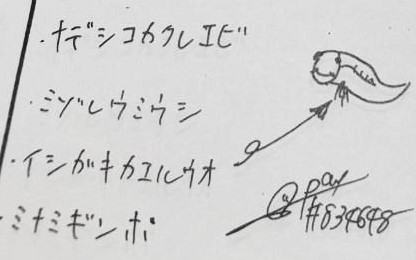 ・ナデシコカクレエビ
・ミゾレウミウシ
・イシガキカエルウオ
・ミナミギンポ
@pay
#834648